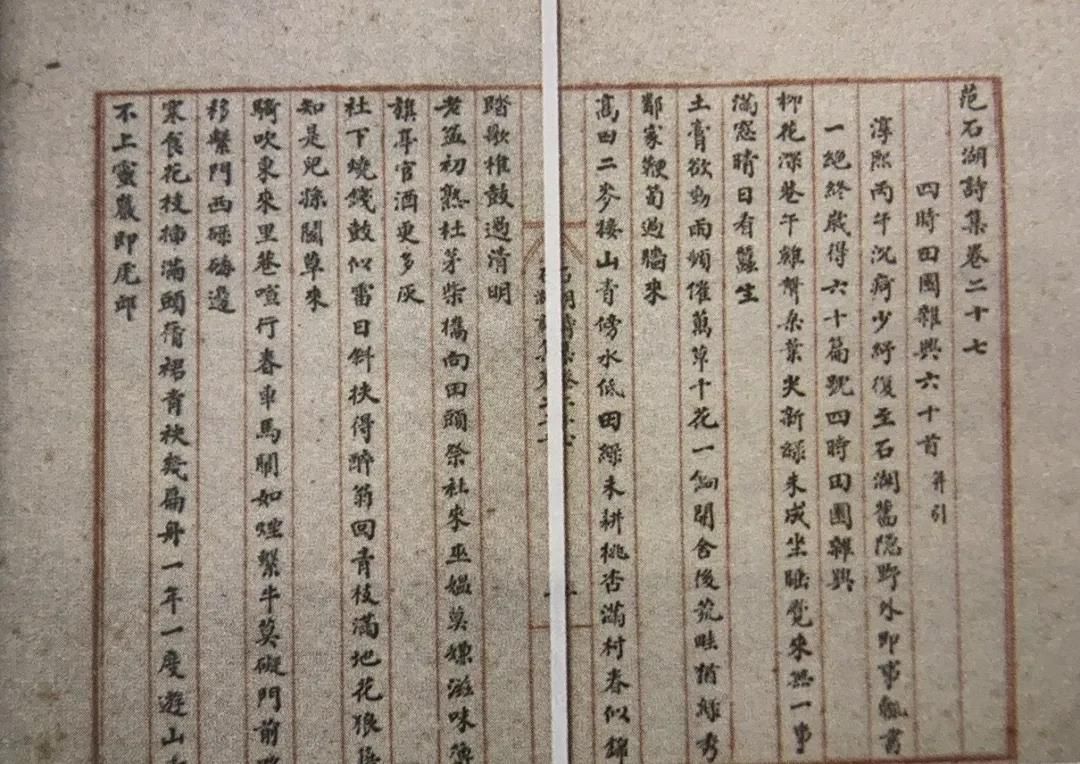 范石湖詩集卷二十七
四時田園雜興六十首 并引
淳熙丙午沉疴少紓復至石湖舊隱野外即事輒書
一絕終歲得六十篇號四時田園雜興
柳花深巷午雞聲桑葉尖新綠未成坐睡覺來無一事
滿窓晴日看蠶生
土膏欲動雨頻催萬草千花一餉開舍後荒畦猶綠秀
鄰家鞭筍過牆來
高田二麥接山青傍水低田綠未耕桃杏滿村春似錦
踏歌椎鼓過清明
老盆初熟杜茅柴攜向田頭祭社來巫媼莫嫌滋味薄
旗亭官酒更多灰
社下燒錢鼓似雷日斜扶得醉翁回青枝滿地花狼
知是兒孫鬬草來
騎吹東來里巷喧行春車馬鬧如煙繫牛莫礙門前
移繫門西碌碡邊
寒食花枝插滿頭蒨裙青袂幾扁舟一年一度遊山
不上靈巖即虎邱